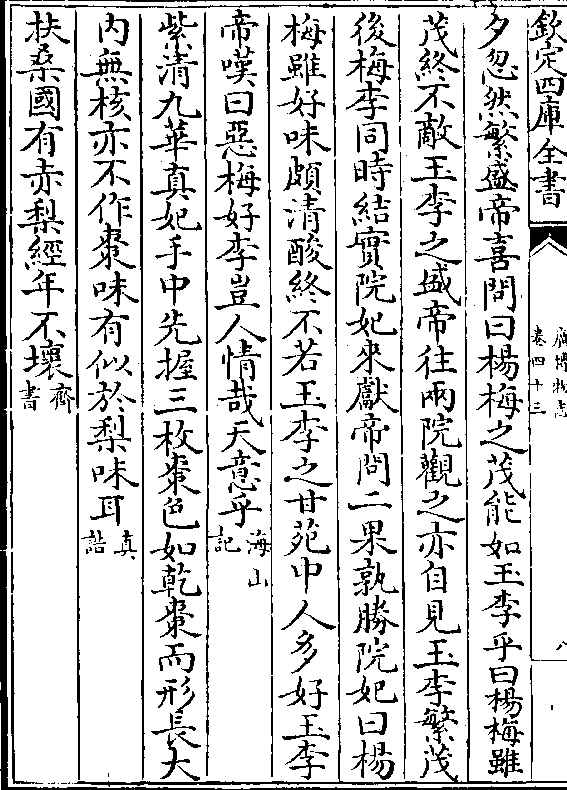 欽定四庫全書
廣博物志
卷四十三
八
夕忽然繁盛帝喜問曰楊梅之茂能如玉李乎曰楊梅雖
茂終不敵玉李之盛帝往兩院觀之亦自見玉李繁茂
後梅李同時結實院妃來獻帝問二果孰勝院妃曰楊
梅雖好味頗清酸終不若玉李之甘苑中人多好玉李
帝嘆曰惡梅好李豈人情哉天意乎海山記
紫清九華真妃手中先握三枚棗色如乾棗而形長大
内無核亦不作棗味有似於梨味耳真誥
扶桑國有赤梨經年不壞齊書